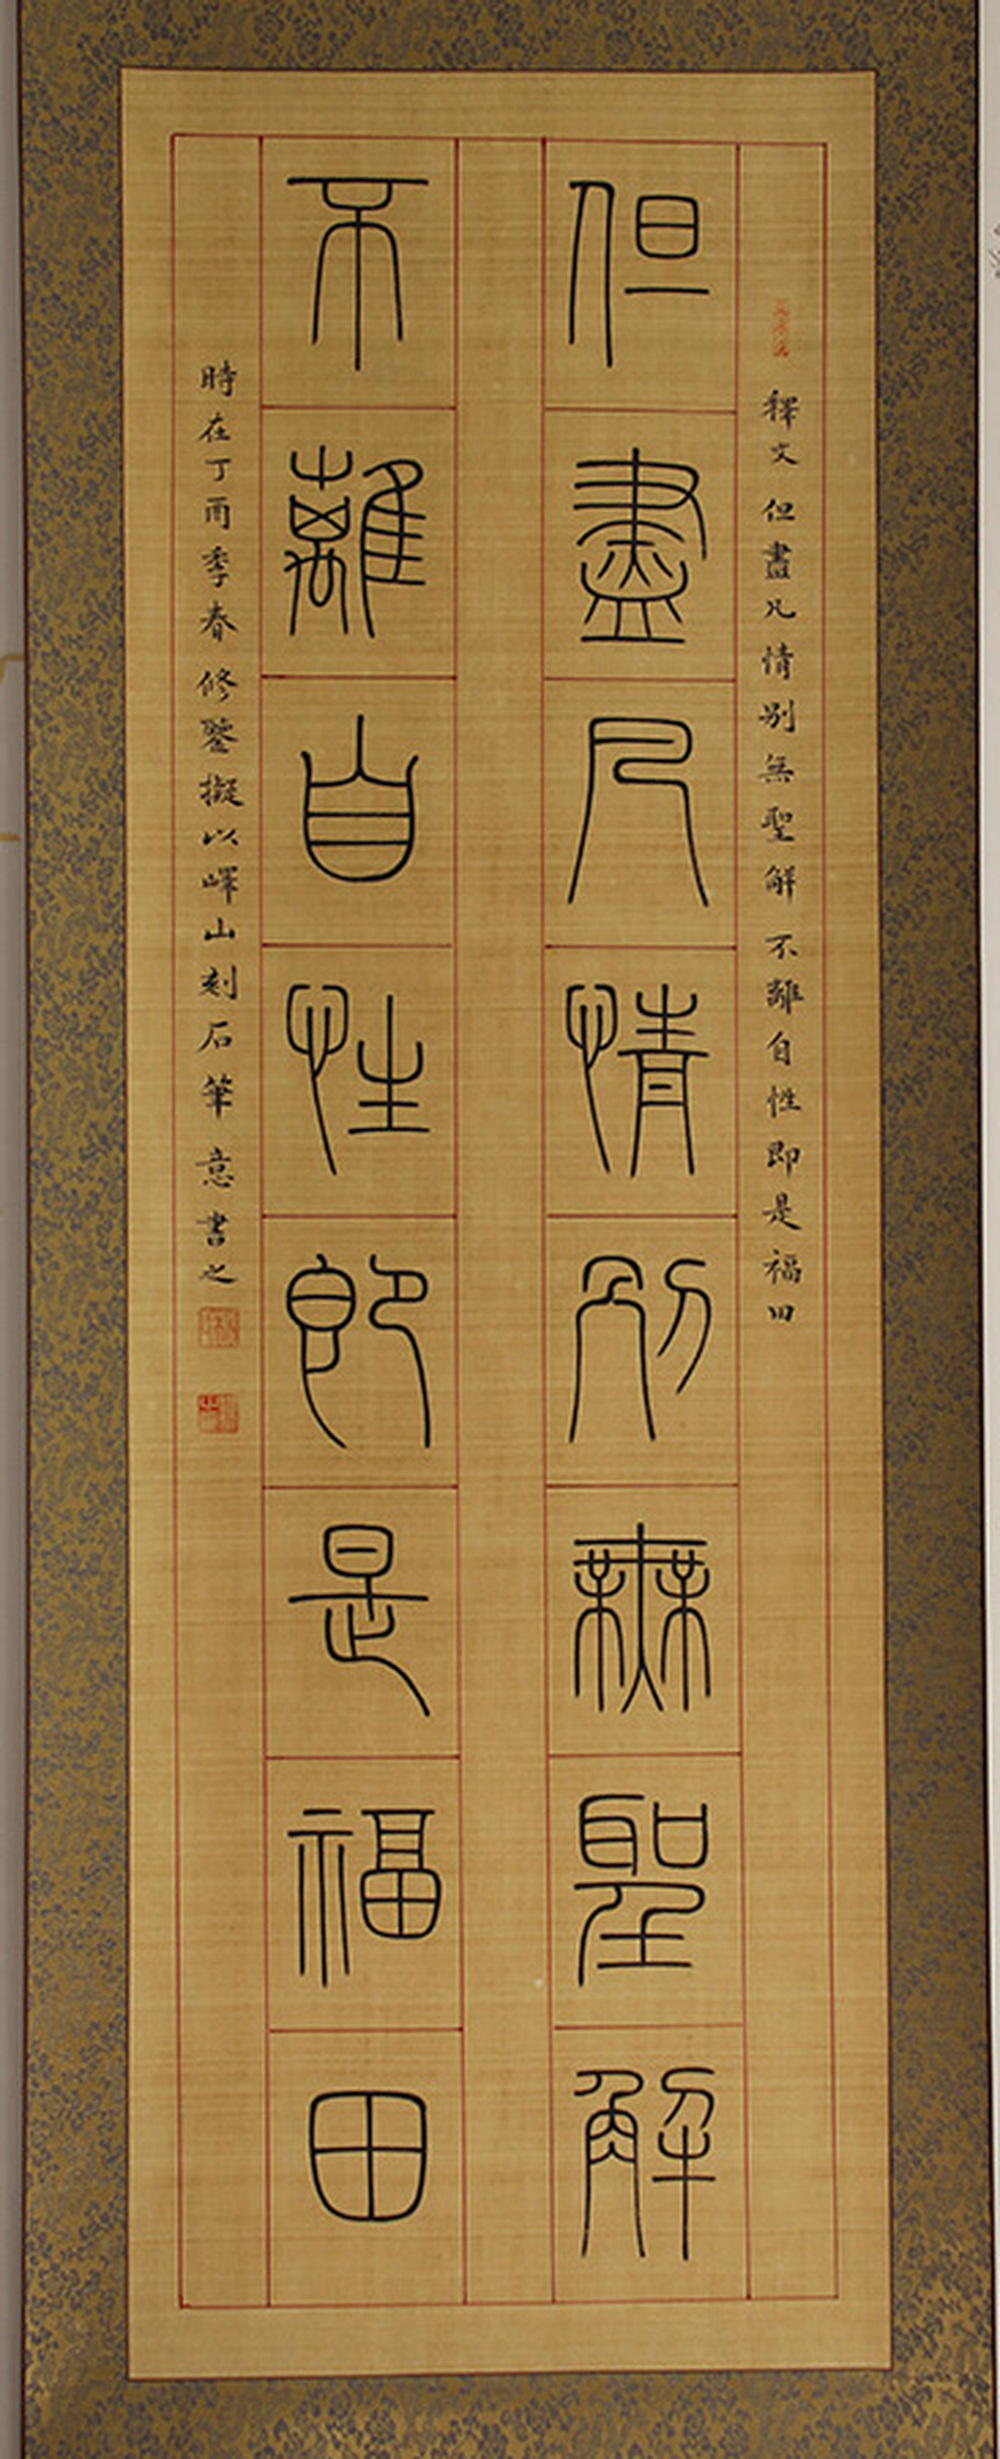 釋文但盡凡情別無聖解不離自性即是福田
但盡凡情別無聖解
不離自性即是福田
時在丁酉季春修鑒擬以嶧山刻石筆意書之